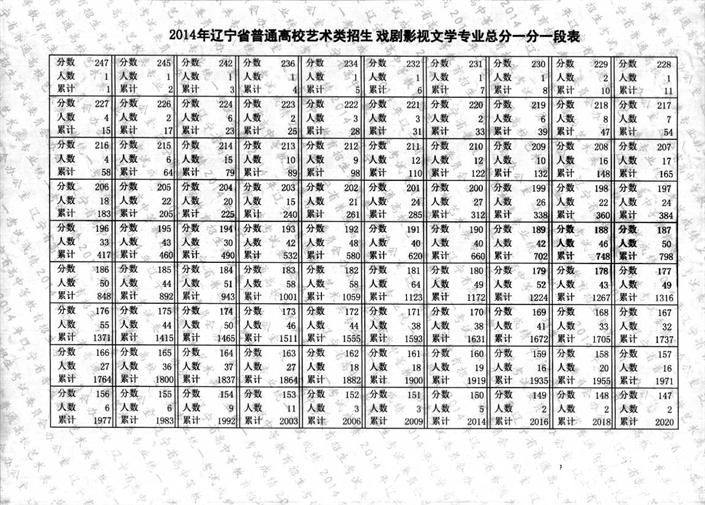 2014年辽宁省普通高校艺术类招生 戏剧影视文学专业总分一分一段表
分数 247 分数 245 分数 242 分数 236 分数 234 分数 232 分数 231 分数 230 分数 229 分数 228
人数 1 人数 1 人数 1 人数 1 人数 1 人数 1 人数 1 人数 1 人数 2 人数 1
累计 1 累计 2 累计 3 累计 4 累计 5 累计 6 累计 7 累计 8 累计 10 累计 11
分数 227 分数 226 分数 224 分数 223 分数 222 分数 221 分数 220 分数 219 分数 218 分数 217
人数 4 人数 2 人数 6 人数 2 人数 3 人数 3 人数 2 人数 6 人数 8 人数 7
累计 15 累计 17 累计 23 累计 25 累计 28 累计 31 累计 33 累计 39 累计 47 累计 54
分数 216 分数 215 分数 214 分数 213 分数 212 分数 211 分数 210 分数 209 分数 208 分数 207
人数 4 人数 6 人数 15 人数 10 人数 9 人数 12 人数 12 人数 10 人数 16 人数 17
累计 58 累计 64 累计 79 累计 89 累计 98 累计 110 累计 122 累计 132 累计 148 累计 165
分数 206 分数 205 分数 204 分数 203 分数 202 分数 201 分数 200 分数 199 分数 198 分数 197
人数 18 人数 22 人数 20 人数 15 人数 21 人数 24 人数 27 人数 26 人数 22 人数 24
累计 183 累计 205 累计 225 累计 240 累计 261 累计 285 累计 312 累计 338 累计 360 累计 384
分数 196 分数 195 分数 194 分数 193 分数 192 分数 191 分数 190 分数 189 分数 188 分数 187
人数 33 人数 43 人数 30 人数 42 人数 48 人数 40 人数 40 人数 42 人数 46 人数 50
累计 417 累计 460 累计 490 累计 532 累计 580 累计 620 累计 660 累计 702 累计 748 累计 798
分数 186 分数 185 分数 184 分数 183 分数 182 分数 181 分数 180 分数 179 分数 178 分数 177
人数 50 人数 44 人数 51 人数 58 人数 58 人数 64 人数 49 人数 52 人数 43 人数 49
累计 848 累计 892 累计 943 累计 1001 累计 1059 累计 1123 累计 1172 累计 1224 累计 1267 累计 1316
分数 176 分数 175 分数 174 分数 173 分数 172 分数 171 分数 170 分数 169 分数 168 分数 167
人数 55 人数 44 人数 50 人数 46 人数 44 人数 38 人数 38 人数 41 人数 33 人数 32
累计 1371 累计 1415 累计 1465 累计 1511 累计 1555 累计 1593 累计 1631 累计 1672 累计 1705 累计 1737
分数 166 分数 165 分数 164 分数 163 分数 162 分数 161 分数 160 分数 159 分数 158 分数 157
人数 27 人数 36 人数 37 人数 27 人数 18 人数 18 人数 19 人数 16 人数 20 人数 16
累计 1764 累计 1800 累计 1837 累计 1864 累计 1882 累计 1900 累计 1919 累计 1935 累计 1955 累计 1971
分数 156 分数 155 分数 154 分数 153 分数 152 分数 151 分数 150 分数 149 分数 148 分数 147
人数 6 人数 6 人数 9 人数 11 人数 3 人数 3 人数 5 人数 2 人数 2 人数 2
累计 1977 累计 1983 累计 1992 累计 2003 累计 2006 累计 2009 累计 2014 累计 2016 累计 2018 累计 2020